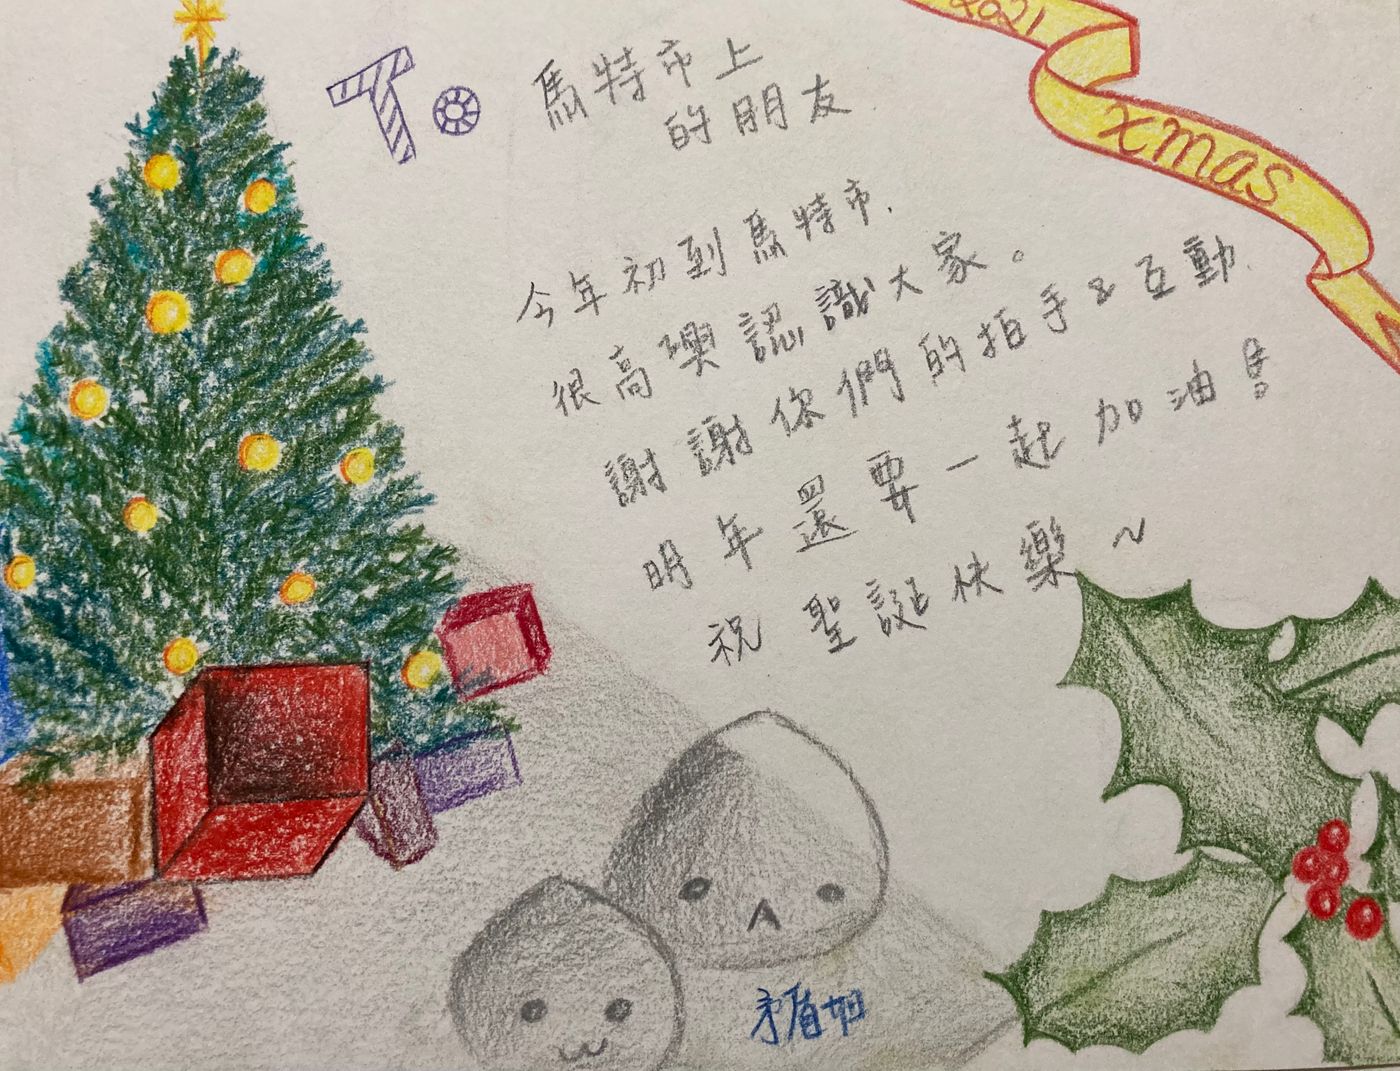 To 馬特市上
的朋友
2021
xmas
今年初到馬特市,
很高興認識大家。
謝謝你們的拍手&互動,
明年還要一起加油!
祝聖誕快樂~
矛盾如